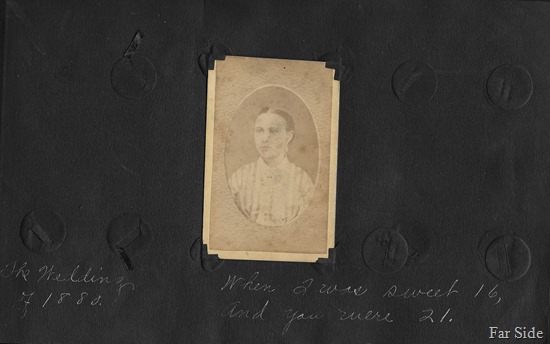 The Wedding
of 1880.
When I was sweet 16,
And you were 21.
Far Side